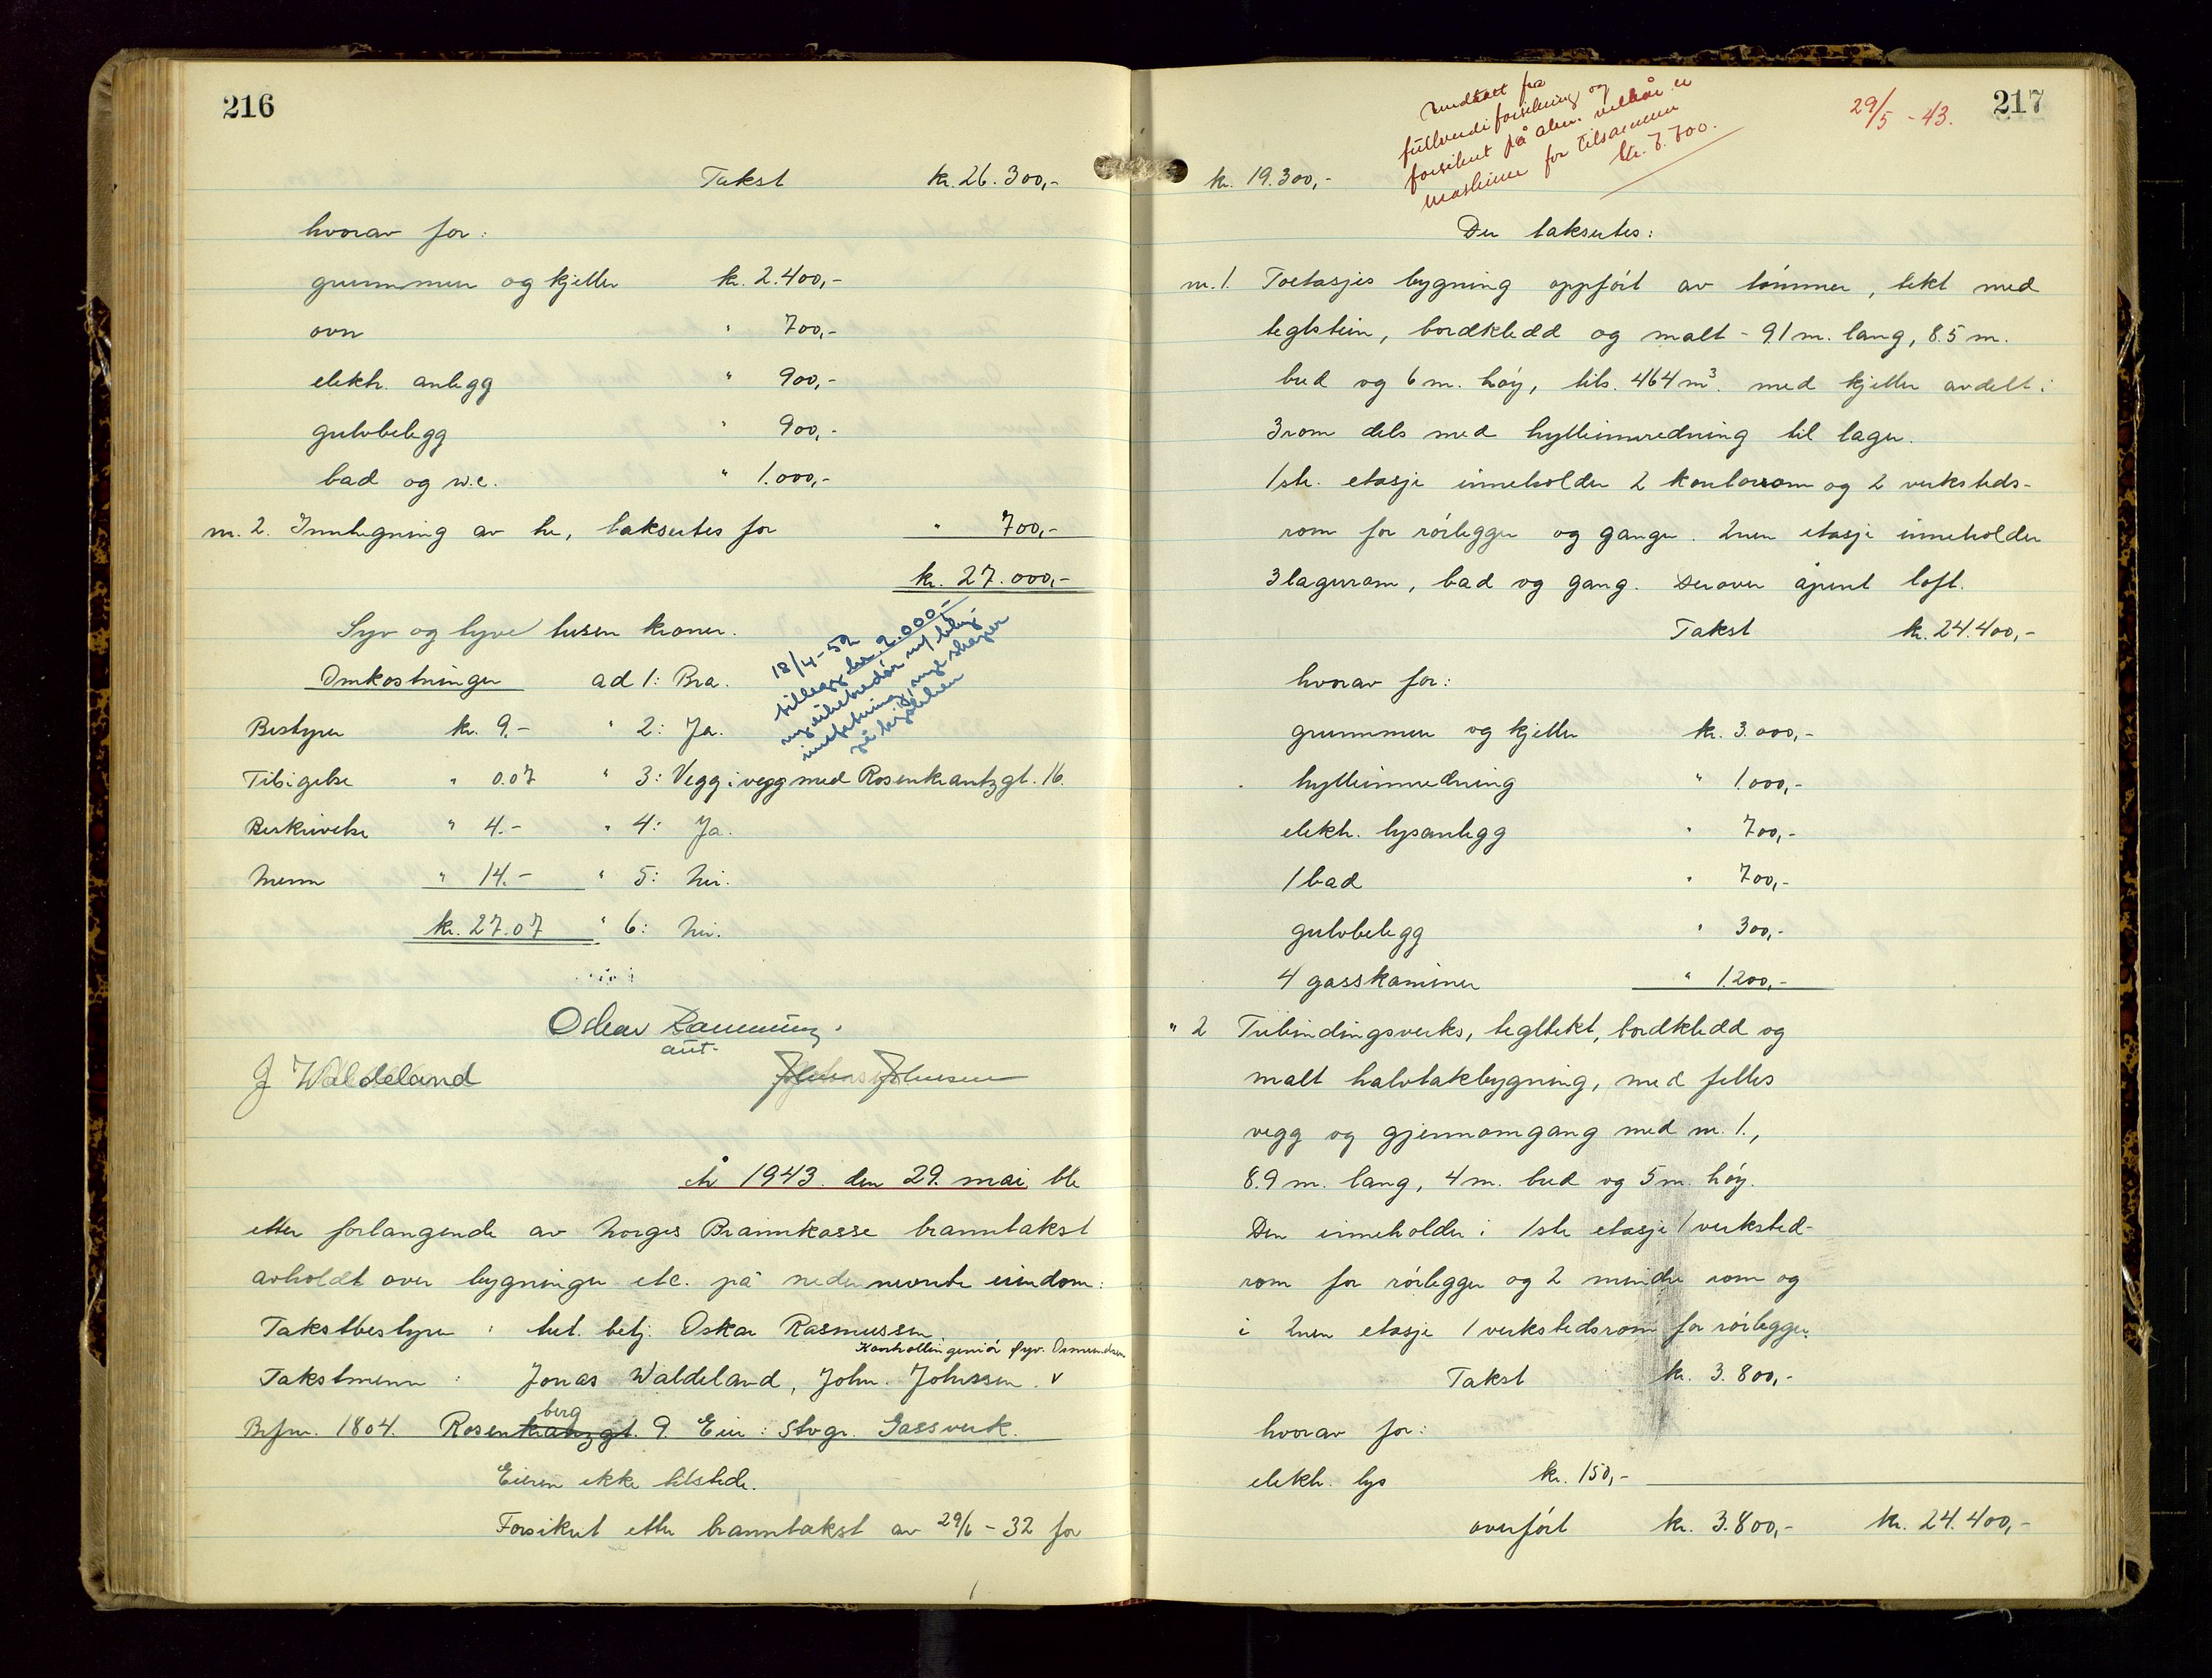 216
Takst kr. 26.300,-
hvorav for:
grunnmur og kjeller kr. 2.400,-
ovn " 700,-
elektr. anlegg " 900,-
gulvbelegg " 900,-
bad og w.c. " 1.000,-
nr. 2. Innhegning av tre, taksertes for " 700,-
kr. 27.000,-
Syv og tyve tusen kroner.
18/4-52
tillegg kr. 2.000,-
innfatning, nye skaper
på kjøkken
Omkostninger ad 1: Bra.
Bestyrer kr. 9.- " 2: Ja.
Tilsigelse " 0.07 " 3: Vegg i vegg med Rosenkrantzgt. 16.
Beskrivelse " 4.- " 4: Ja.
Menn " 14.- " 5: Nei.
kr. 27.07 " 6: Nei.
Oskar Rasmussen
aut.
J Waldeland John Johnsen
År 1943 den 29. mai ble
etter forlangende av Norges Brannkasse branntakst
avholdt over bygninger etc. på nedennevnte eiendom:
Takstbestyrer : aut. betj. Oskar Rasmussen.
Kontrollingeniør Syv. Osmundsen
Takstmenn : Jonas Waldeland, John. Johnsen. v
berg
Brfnr. 1804. Rosenkrantzgt. 9. Eier: Stvgr. Gassverk.
Eieren ikke tilstede.
Forsikret etter branntakst av 29/6 - 32 for
217
29/5 - 43.
unntatt fra
fullverdiforsikring og
forsikret på alm. vilkår er
maskiner for tilsammen
kr. 7.700.
kr. 19.300,-
Der taksertes:
nr. 1. Toetasjes bygning oppført av tømmer, tekt med
teglstein, bordkledd og malt - 9.1 m. lang, 8.5 m.
bred og 6 m. høy, tils. 464 m³. med kjeller avdelt i
3 rom dels med hylleinnredning til lager.
1ste. etasje inneholder 2 kontorrom og 2 verksteds-
rom for rørlegger og ganger. 2nen etasje inneholder
3 lagerrom, bad og gang. Derover åpent loft.
Takst kr. 24.400,-
hvorav for:
grunnmur og kjeller kr. 3.000,-
hylleinnredning " 1.000,-
elektr. lysanlegg " 700,-
1 bad " 700,-
gulvbelegg " 300,-
4 gasskaminer " 1.200,-
" 2 Trebindingsverks, tegltekt, bordkledd og
malt halvtakbygning, med felles
vegg og gjennomgang med nr. 1.,
8.9 m. lang, 4 m. bred og 5 m. høy.
Den inneholder i 1ste etasje 1 verksted-
rom for rørlegger og 2 mindre rom og
i 2nen etasje 1 verkstedsrom for rørlegger.
Takst kr. 3.800,-
hvorav for:
elektr. lys kr. 150,-
overført kr. 3.800,- kr. 24.400,-